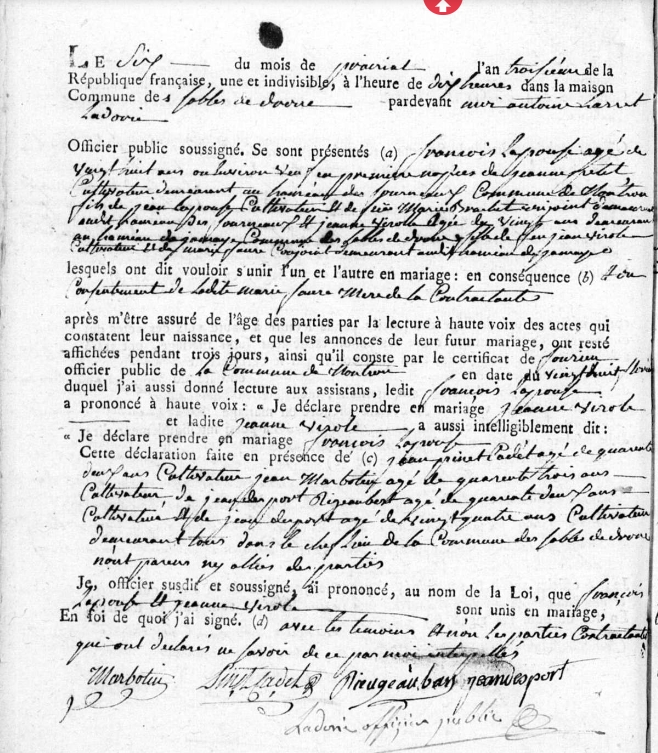 LE Six du mois de prairial l'an troisieme de la
République française, une et indivisible, à l'heure de dix heures dans la maison
Commune des sables de dronne pardevant moi antoine Larret
Ladorie
Officier public soussigné. Se sont présentés (a) françois Lapouse agé de
vingt huit ans ou environ veuf en premiere nopces de jeanne petit
Cultivateur demeurant au hameau des fourneaux Commune de Montron
fils de jean lapouse Cultivateur & de feue Marie conjoint demeurant
audit hameau des fourneaux & jeanne virole agée de vingt ans demeurant
au hameau de Commune des sables de dronne fille de feu jean virole
Cultivateur & de marie faure Conjoint demeurant audit hameau de
lesquels ont dit vouloir s'unir l'un et l'autre en mariage : en conséquence (b) & du
Consentement de Ladite marie faure Mere de la Contractante
après m'être assuré de l'âge des parties par la lecture à haute voix des actes qui
constatent leur naissance, et que les annonces de leur futur mariage, ont resté
affichées pendant trois jours, ainsi qu'il conste par le certificat de
officier public de La Commune de en date du vingt huit
duquel j'ai aussi donné lecture aux assistans, ledit françois Lapouse
a prononcé à haute voix : « Je déclare prendre en mariage jeanne virole
et ladite jeanne virole a aussi intelligiblement dit :
« Je déclare prendre en mariage françois Lapouse
Cette déclaration faite en présence de (c) jean pinet Cadet agé de quarante
deux ans Cultivateur jean Marbotin agé de quarente trois ans
Cultivateur de agé de quarante deux ans
Cultivateur & de jean duport agé de vingt quatre ans Cultivateur
demeurant tous dans le chef lieu de la Commune des sables de dronne
n'ont parens ny alliés des parties
Je, officier susdit et soussigné, ai prononcé, au nom de la Loi, que françois
Lapouse & jeanne virole sont unis en mariage,
En foi de quoi j'ai signé. (d) avec les temoins & non Les parties Contractantes
qui ont declarés ne savoir de ce par moi interpellés
Marbotin jeandesport
Ladorie officier public